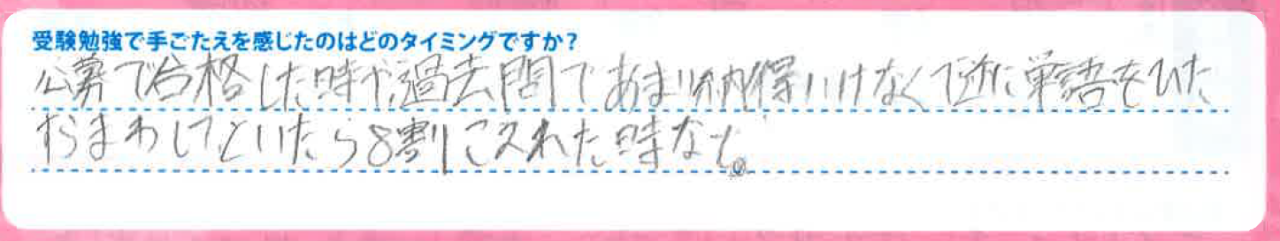 受験勉強で手ごたえを感じたのはどのタイミングですか？
公募で合格した時や、過去問であまり納得いけなくて逆に単語をひた
すらまわしてといたら8割こえれた時など。